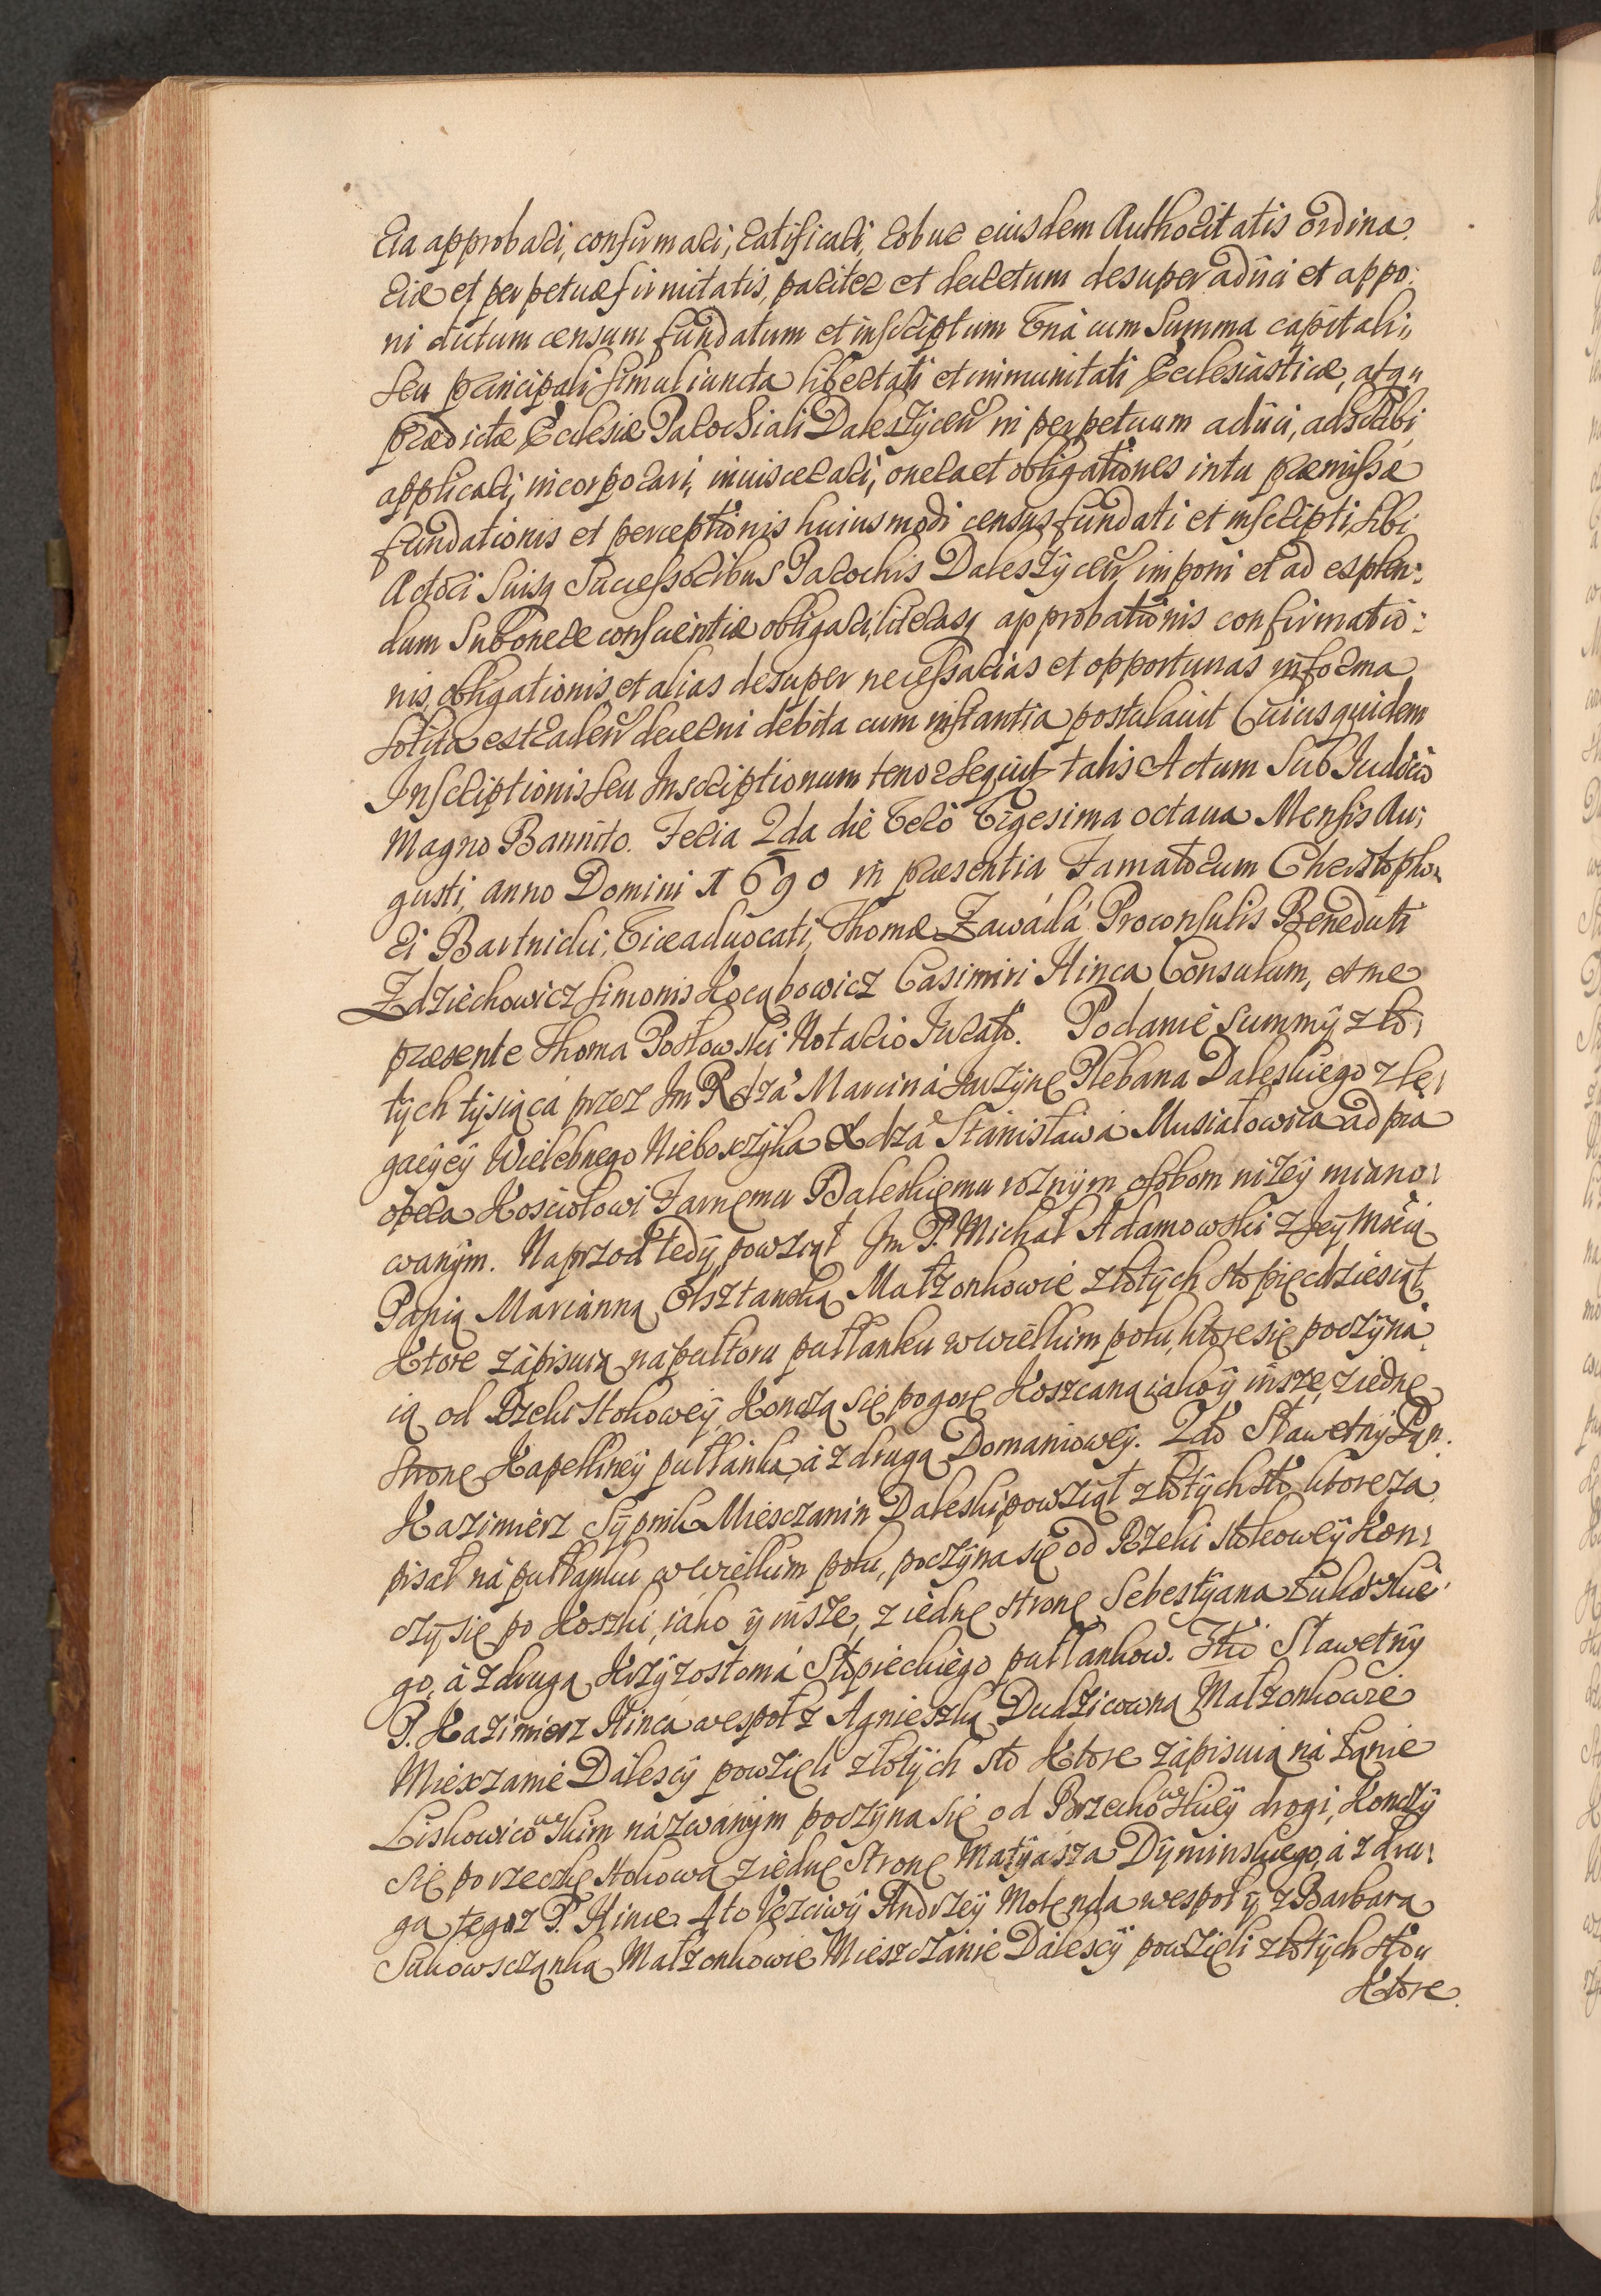 ria approbari, confirmari, ratificari, robur eiusdem Authoritatis ordina:
riæ et perpetuæ firmitatis, pariter et decretum desuper adiici et appo:
ni dictum censum fundatum et inscriptum Vná cum Summa capitali,
seu principali simul iuncta libertati et immunitati Ecclesiasticæ, atq,
prædictæ Ecclesiæ Parochiali Daleszÿceñ in perpetuum adiici, adscribi
applicari, incorporari, inuiscerari, onera et obligationes intu præmissæ
fundationis et perceptionis huiusmodi census fundati et inscripti sibi
Actori Suisq Successoribus Parochis Daleszÿceñ imponi et ad explen:
dum Sub onere conscientiæ obligari, literasq approbationis confirmatio:
nis, obligationis, et alias desuper necessarias et opportunas in forma
solita extradeñ decerni debita cum instantia postulauit Cuius quidem
Inscriptionis seu Inscriptionum tenor sequit talis Actum Sub Judicio
Magno Bannito. Feria 2da die Vero Vigesima octaua Mensis Au:
gusti, anno Domini 1690 in præsentia Famatorum Christopho:
ri Bartnicki, Viceaduocati, Thomæ Zawádá Proconsulis Benedicti
Zdziechowicz Simonis Kocąbowicz Casimiri Hinca Consulum, et me
præsente Thoma Posłowski Notario Jurato. Podanie Summÿ zło:
tÿch tÿsiącá przez Jm Xdzá Marciná Jurzÿnę Plebana Daleskiego z le:
gacÿeÿ Wielebnego Nieboszczÿka Xdzá Stánisławá Musiałowica ad pia
opera Kosciołowi Farnemu Daleskiemu roznÿm osobom nizeÿ miano:
wanÿm. Naprzod tedÿ powziął Jm P. Michał Adamowski z Jeÿ Mścią
Panią Marianną Olsztanską Małzonkowie złotÿch sto pięcdziesiąt
Ktore zápisuią ná pułtoru pułłanku w wielkim polu, ktore się poczÿná:
ią od Rzeki Stokoweÿ, Konczą się pogorę Koszcaną iako ÿ insze, z iednę
stronę Kapellneÿ pułłánká, á z drugą Domanioweÿ. 2do Sławetnÿ Pąn.
Kazimierz Sÿpnik Miesczanin Daleski powziął złotÿch sto, ktore zá:
pisał ná pułłanku w wielkim polu, poczÿna się od Rzeki stokoweÿ Kon:
czÿ się po Koszki, iáko ÿ insze, z iednę stronę Sebestÿana Łukowskie:
go, á z drugą Krzÿzostomá Stopieckiego pułłankow. 3tio Sławetnÿ
P. Kazimierz Hincá wespoł z Agnieszką Dudzicowną Małzonkowie
Miesczanie Dálescÿ powzięli złotÿch sto Ktore zápisuią ná łanie
Liskowicowskim názwánÿm poczÿna się od Brzechowskieÿ drogi, Konczÿ
się po rzeczkę stokową z iednę stronę Matÿászá Dÿminskiego, á z dru:
gą tegoz P. Hince. 4to Vczciwÿ Andrzeÿ Molenda wespoł ÿ z Barbarą
Sukowsczanką Małzonkowie Miesczánie Dálescÿ powzięli złotÿch sto,
Ktore